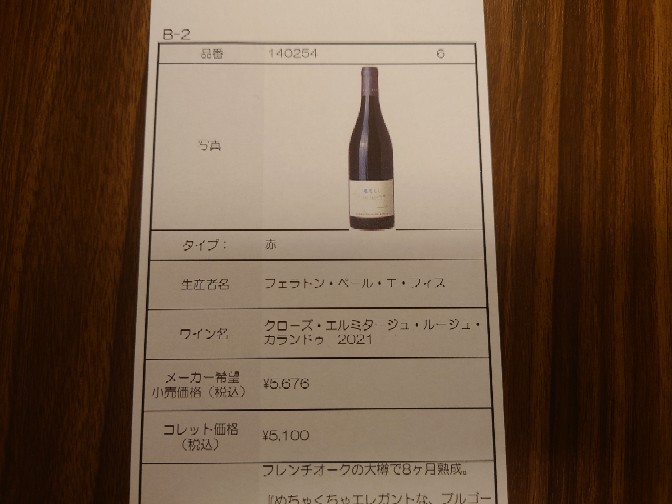 B-2
品番 140254 6
写真
タイプ： 赤
生産者名 フェラトン・ペール・エ・フィス
ワイン名 クローズ・エルミタージュ・ルージュ・
カランドゥ 2021
メーカー希望
小売価格（税込） ¥5,676
コレット価格
（税込） ¥5,100
フレンチオークの大樽で8ヶ月熟成。
『めちゃくちゃエレガントな、ブルゴー